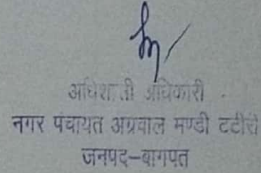 अधिशाषी अधिकारी
नगर पंचायत अग्रवाल मण्डी टटीरी
जनपद-बागपत